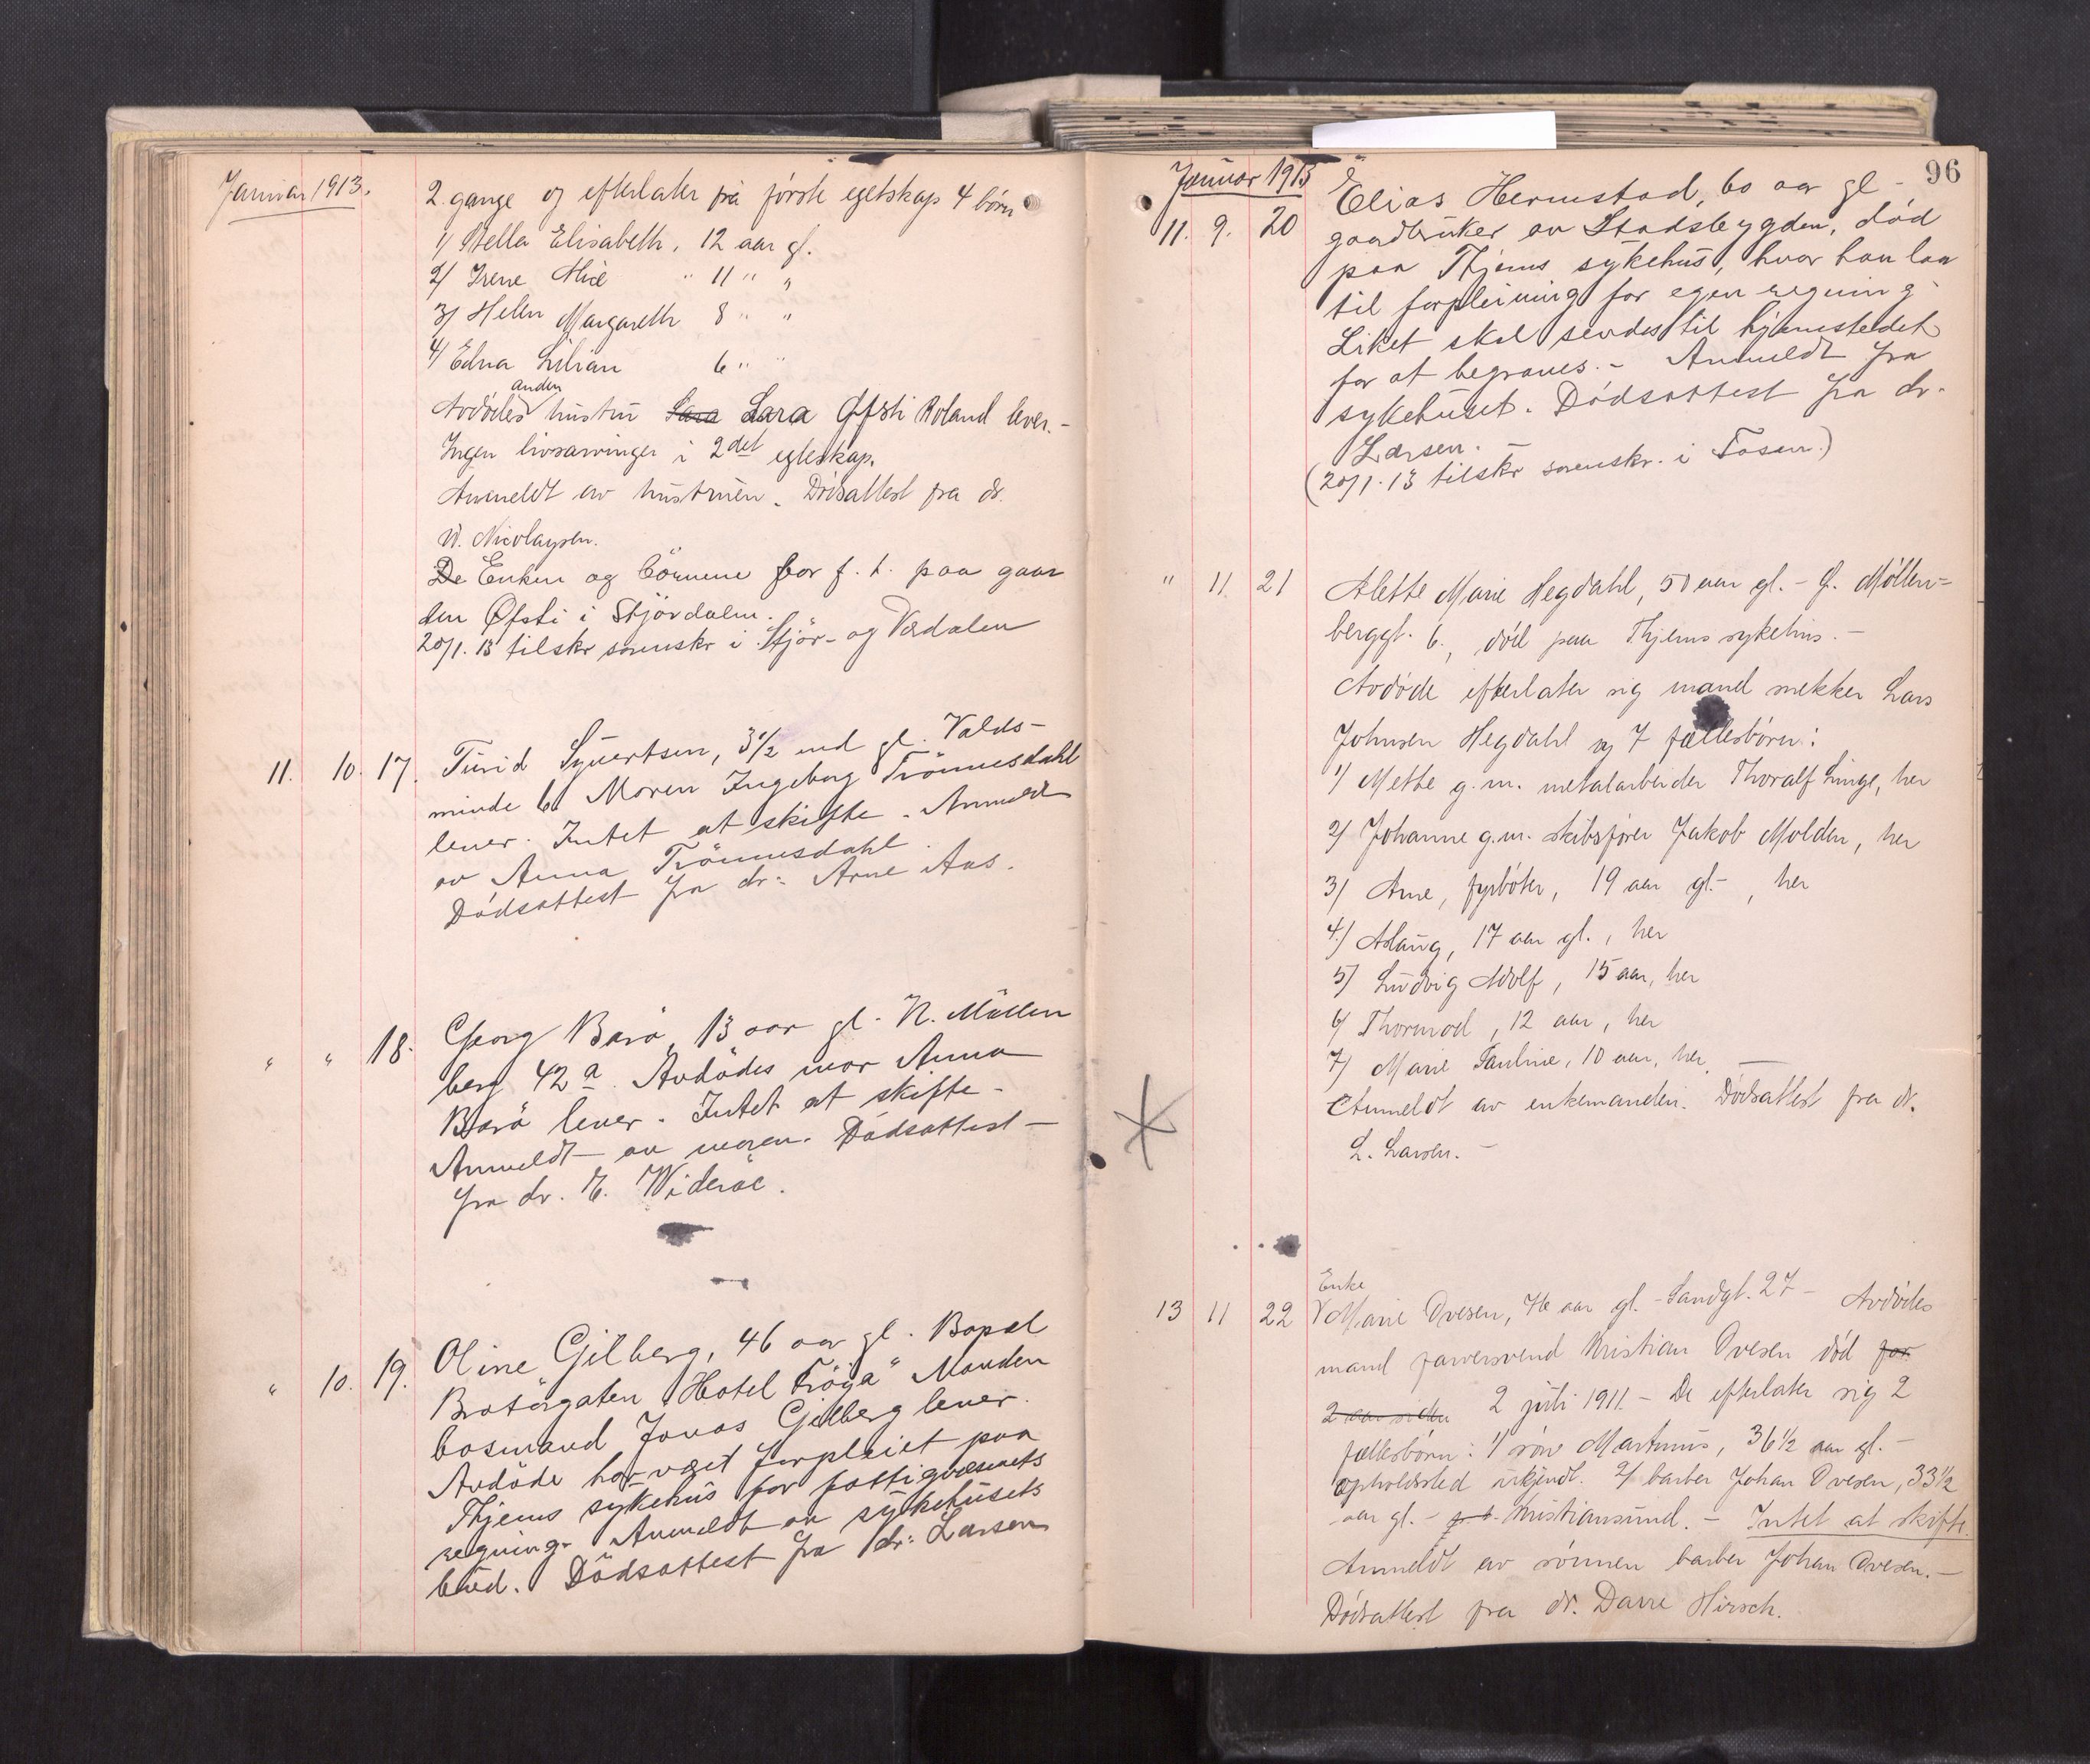 Januar 1913.
2 gange og efterlater fra förste egteskap 4 börn
1/ Stella Elisabeth, 12 aar gl.
2/ Irene Alice " 11 " "
3/ Helen Margareth 8 " "
4/ Edna Lilian 6 " "
anden
Avdödes hustru Sara Lara Øfsti Roland lever. -
Ingen livsarvinger i 2det egteskap.
Anmeldt av hustruen. Dödsattest fra dr.
W. Nicolaysen.
De Enken og börnene bor f. t. paa gaar
den Øfsti i Stjördalen.
20/1. 13 tilskr sorenskr i Stjör- og Værdalen
11. 10. 17. Turid Syvertsen, 3 1/2 md gl. Valds-
minde 6 Moren Ingeborg Trönnesdahl
lever. Intet at skifte. Anmeldt
av Anna Trönnesdahl.
Dödsattest fra dr: Arne Aas.
" " 18. Georg Barö, 13 aar gl. N. Möllen
berg 42a. Avdödes mor Anna
Barö lever. Intet at skifte.
Anmeldt av moren. Dödsattest
fra dr. E. Wideröe.
" 10. 19. Oline Gjelberg, 46 aar gl. Bopæl
Bratörgaten "Hotel Fröya" Manden
bosmand Jonas Gjelberg lever.
Avdöde har været forpleiet paa
Thjems sykehus for fattigvæsenets
regning. Anmeldt av sykehusets
bud. Dödsattest fra dr: Larsen
96
Januar 1913
11. 9. 20 Elias Hermstad, 60 aar gl -
gaardbruker av Stadsbygden, död
paa Thjems sykehus, hvor han laa
til forpleining for egen regning.
Liket skal sendes til hjemstedet
for at begraves. - Anmeldt fra
sykehuset. Dödsattest fra dr.
Larsen. -
(20/1. 13 tilskr sorenskr. i Fosen.)
" 11. 21 Alette Marie Hegdahl, 50 aar gl. - Ø. Møllen-
berggt. 6., död paa Thjems sykehus. -
Avdöde efterlater sig mand snekker Lars
Johnsen Hegdahl og 7 fællesbörn:
1/ Mette g.m. metalarbeider Thoralf Linge, her
2/ Johanne g.m. skibsförer Jakob Molden, her
3/ Arne, fyrböter, 19 aar gl. -, her
4/ Aslaug, 17 aar gl., her
5/ Ludvig Adolf, 15 aar, her
6/ Thormod, 12 aar, her
7/ Marie Pauline, 10 aar, her. -
Anmeldt av enkemanden. Dödsattest fra dr.
L. Larsen. -
Enke
13 11 22 Marie Ovesen, 76 aar gl. - Sandgt. 27 - Avdödes
mand farversvend Kristian Ovesen död for
2 aar siden 2 juli 1911. - De efterlater sig 2
fællesbörn: 1/ sön Martinus, 36 1/2 aar gl. -
opholdssted ukjendt. 2/ barber Johan Ovesen, 33 1/2
aar gl. - f. t. Kristiansund. - Intet at skifte.
Anmeldt av sönnen barber Johan Ovesen. -
Dödsattest fra dr. Darre Hirsch.